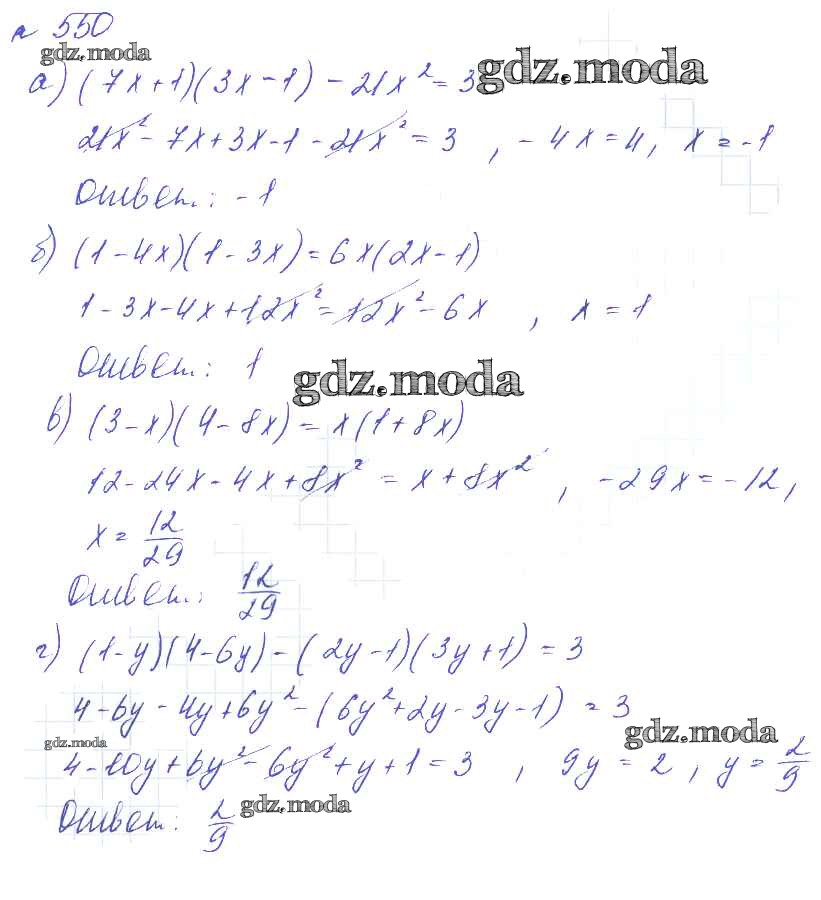 № 550
gdz.moda
а) (7x+1)(3x-1) - 21x² = 3
gdz.moda
21x² - 7x + 3x - 1 - 21x² = 3 , - 4x = 4, x = -1
Ответ: -1
б) (1-4x)(1-3x) = 6x(2x-1)
1 - 3x - 4x + 12x² = 12x² - 6x , x = 1
Ответ: 1
gdz.moda
в) (3-x)(4-8x) = x(1+8x)
12 - 24x - 4x + 8x² = x + 8x² , -29x = -12,
x = 12/29
Ответ: 12/29
г) (1-y)(4-6y) - (2y-1)(3y+1) = 3
4 - 6y - 4y + 6y² - (6y² + 2y - 3y - 1) = 3
gdz.moda
gdz.moda
4 - 10y + 6y² - 6y² + y + 1 = 3 , 9y = 2, y = 2/9
Ответ: 2/9
gdz.moda